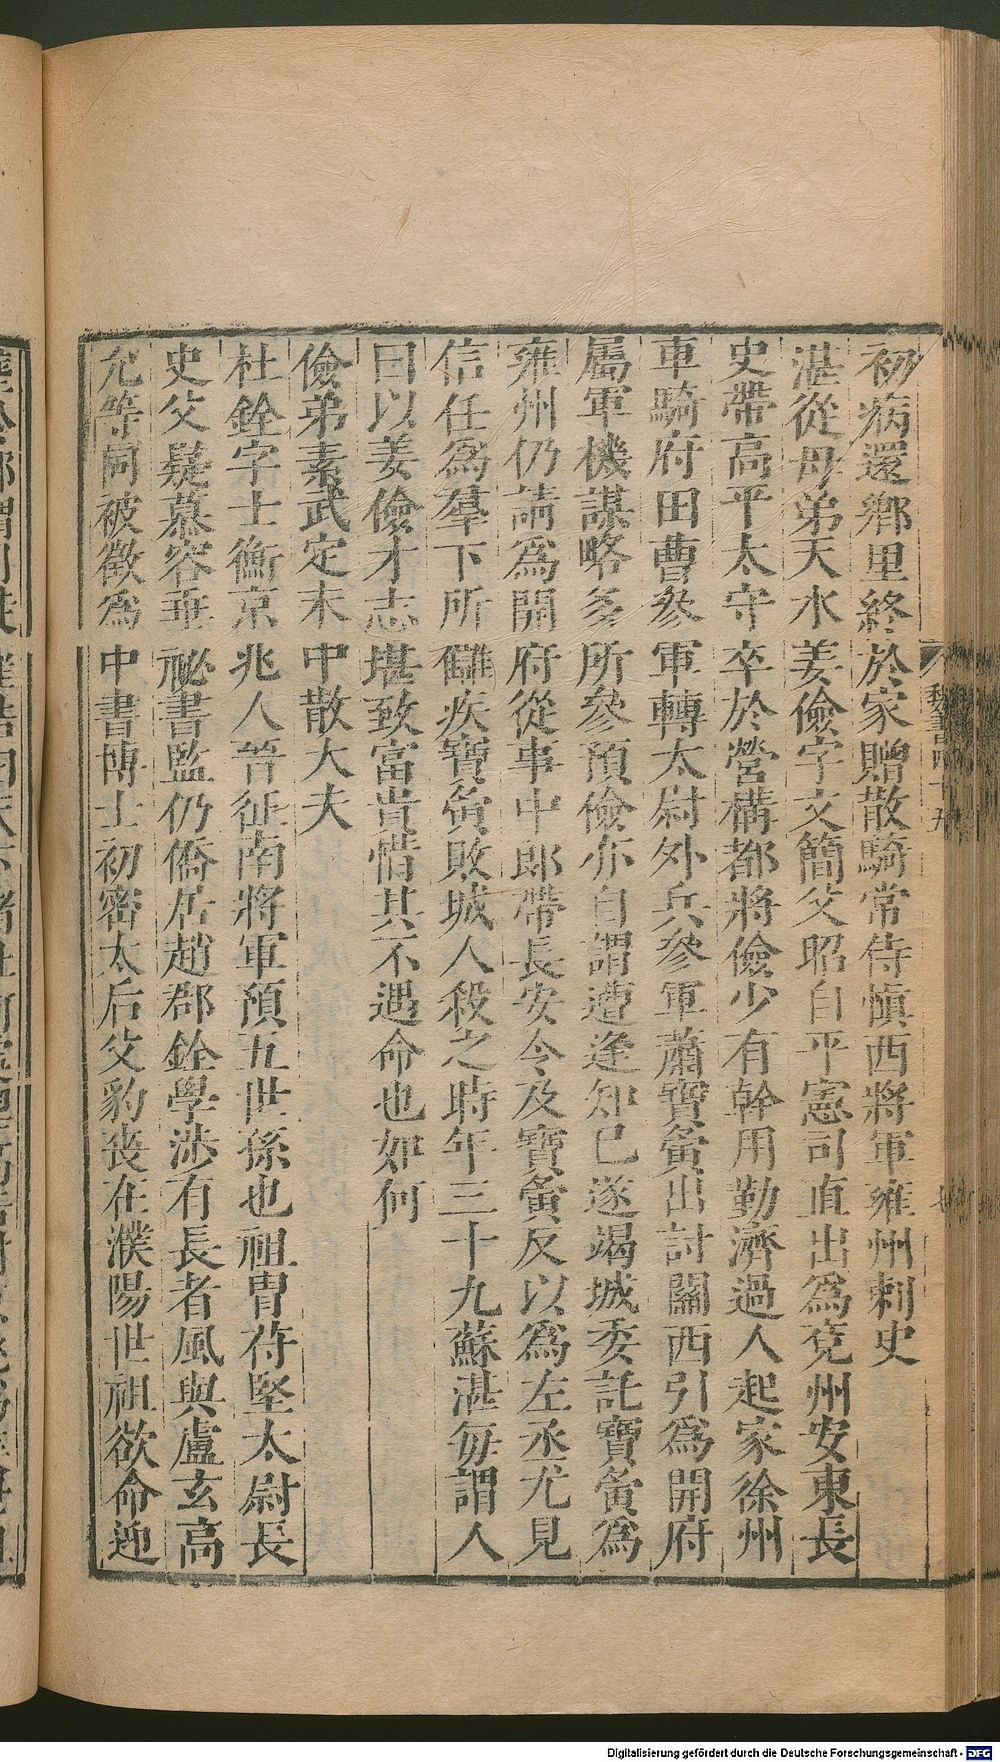 初病還鄉里終於家贈散騎常侍愼西將軍雍州刺史
湛從母弟天水姜儉字文簡父昭自平憲司直出爲兗州安東長
史帶高平太守卒於營構都將儉少有幹用勤濟過人起家徐州
車騎府田曹參軍轉太尉外兵參軍蕭寶夤出討關西引爲開府
屬軍機謀略多所參預儉亦自謂遭逢知已遂竭城委託寶夤爲
雍州仍請爲開府從事中郎帶長安令及寶夤反以爲左丞尤見
信任爲羣下所讎疾寶夤敗城人殺之時年三十九蘇湛每謂人
曰以姜儉才志堪致富貴惜其不遇命也如何
儉弟素武定末中散大夫
杜銓字士衡京兆人晉征南將軍預五世孫也祖冑苻堅太尉長
史父嶷慕容垂祕書監仍僑居趙郡銓學涉有長者風與盧玄高
允等同被徵爲中書博士初密太后父豹喪在濮陽世祖欲命迎
魏書四十五
Digitalisierung gefördert durch die Deutsche Forschungsgemeinschaft - DFG